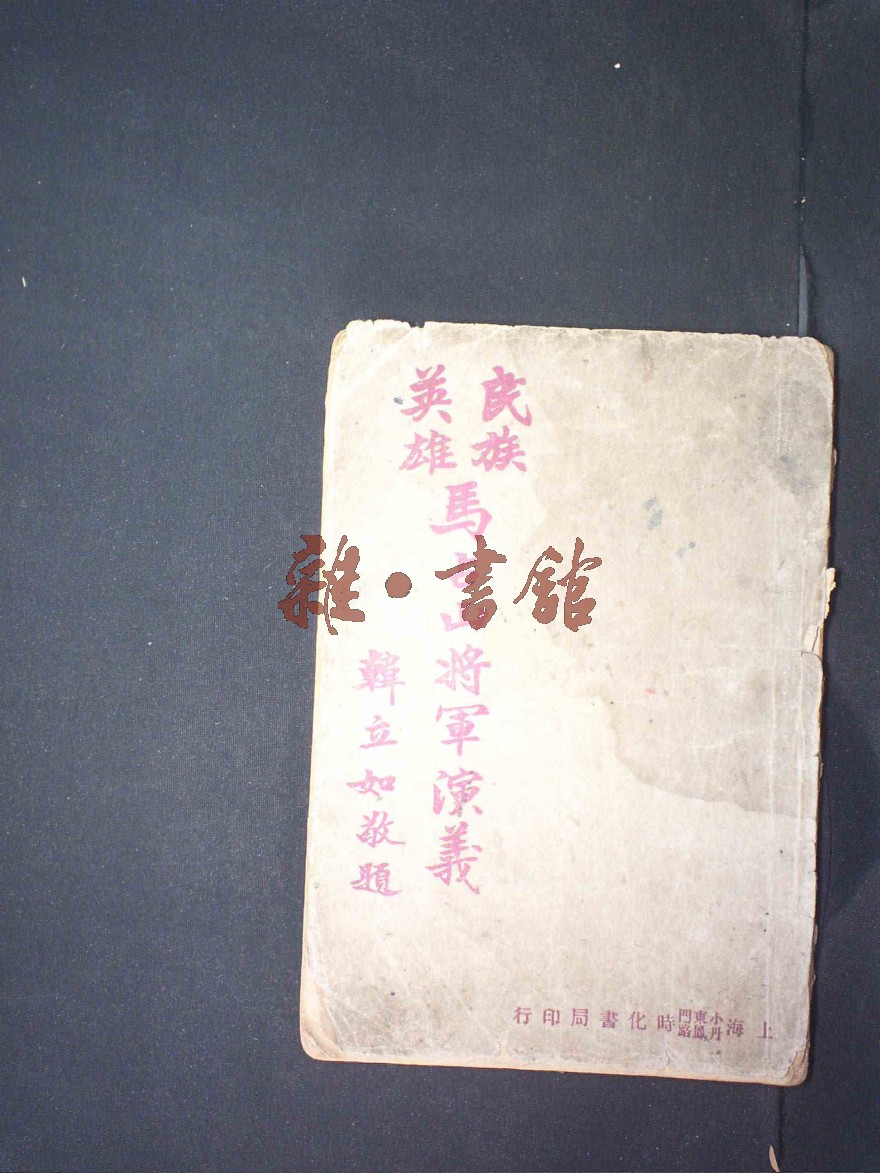 民族
英雄
馬占山將軍演義
韓立如敬題
上海小東門丹鳳路時化書局印行
雜·書館